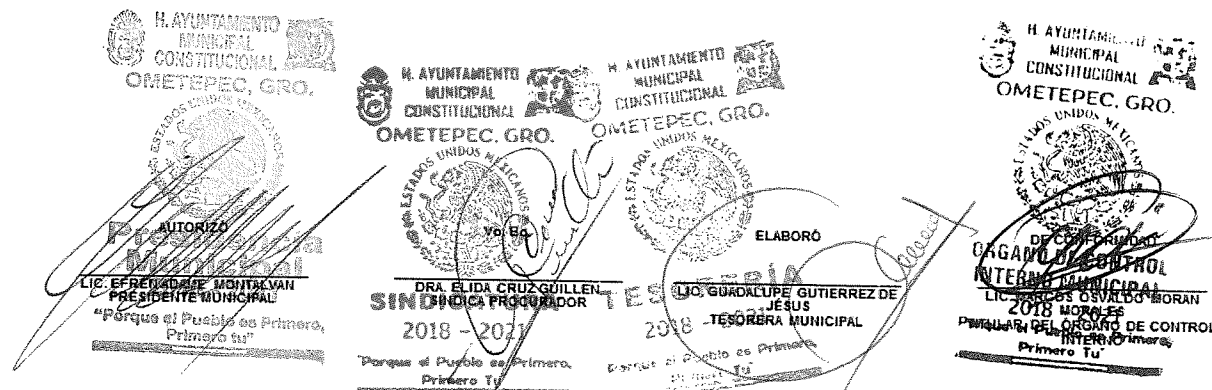 H. AYUNTAMIENTO
MUNICIPAL
CONSTITUCIONAL
OMETEPEC, GRO.
ESTADOS UNIDOS MEXICANOS
AUTORIZÓ
Presidencia
Municipal
LIC. EFREN ADAME MONTALVAN
PRESIDENTE MUNICIPAL
"Porque el Pueblo es Primero,
Primero tu"
H. AYUNTAMIENTO
MUNICIPAL
CONSTITUCIONAL
OMETEPEC, GRO.
ESTADOS UNIDOS MEXICANOS
Vo. Bo.
DRA. ELIDA CRUZ GUILLEN
SINDICA PROCURADOR
2018 - 2021
"Porque el Pueblo es Primero,
Primero Tu"
H. AYUNTAMIENTO
MUNICIPAL
CONSTITUCIONAL
OMETEPEC, GRO.
ESTADOS UNIDOS MEXICANOS
ELABORÓ
TESORERÍA
LIC. GUADALUPE GUTIERREZ DE
JÉSUS
TESORERA MUNICIPAL
2018 - 2021
Porque el Pueblo es Primero,
Primero Tu"
H. AYUNTAMIENTO
MUNICIPAL
CONSTITUCIONAL
OMETEPEC, GRO.
ESTADOS UNIDOS MEXICANOS
DE CONFORMIDAD
ORGANO DE CONTROL
INTERNO MUNICIPAL
LIC. MARCOS OSVALDO MORAN
MORALES
2018 - 2021
TITULAR DEL ÓRGANO DE CONTROL
INTERNO
"Porque el Pueblo es Primero,
Primero Tu"